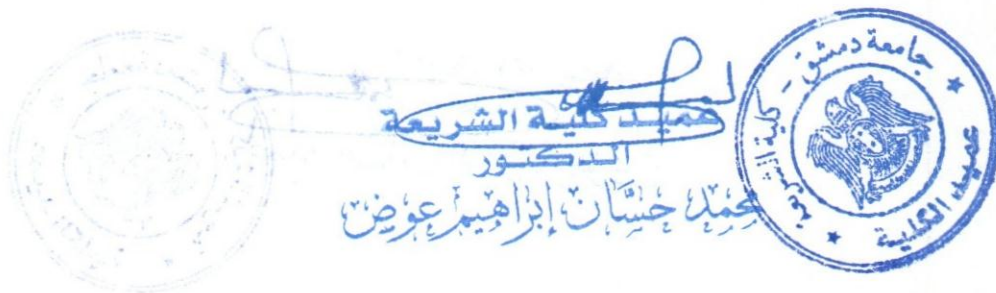 عميد كلية الشريعة
الدكتور
محمد حسَّان إبراهيم عوض
جامعة دمشق - كلية الشريعة
عميد الكلية